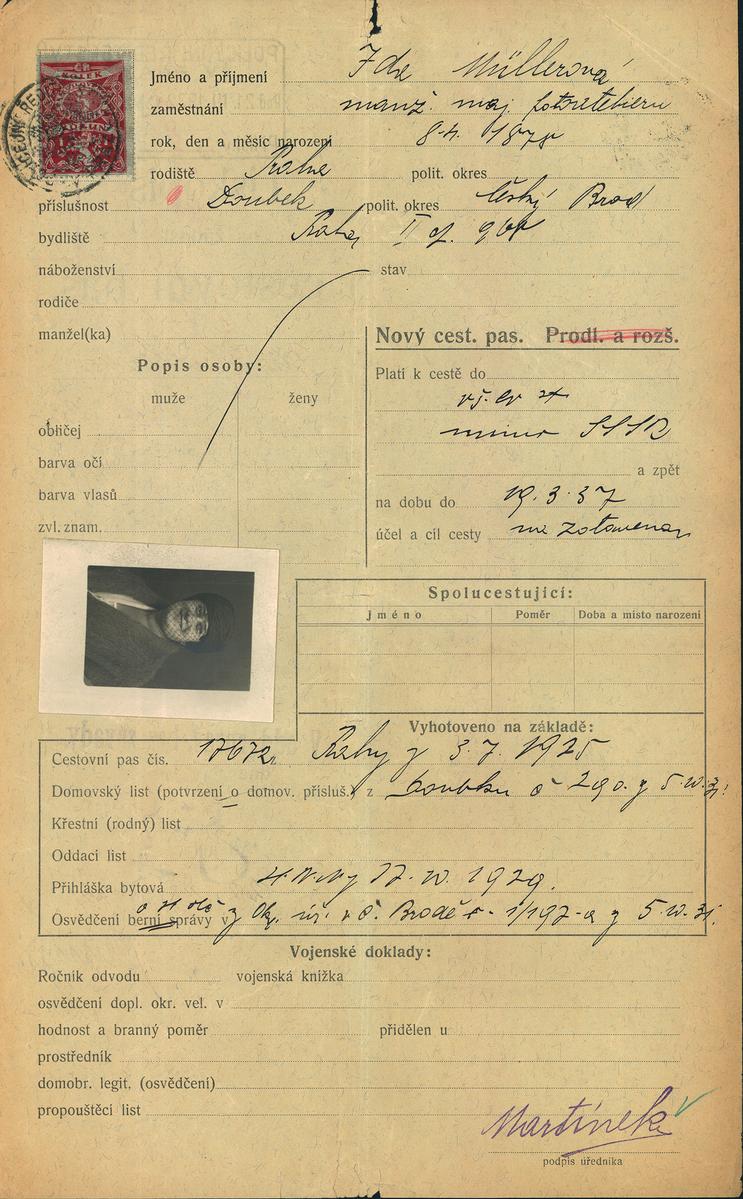 KOLEK
Jméno a příjmení Ida Müllerová
zaměstnání manž. maj.
rok, den a měsíc narození 1878
rodiště Praha polit. okres
příslušnost Doubek polit. okres Český Brod
bydliště Praha II čp.
náboženství stav
rodiče
manžel(ka)
Nový cest. pas. Prodl. a rozš.
Popis osoby:
Platí k cestě do
muže ženy
vš. ev. st.
obličej
mimo SSSR
barva očí
a zpět
barva vlasů
na dobu do 19. 3. 37
zvl. znam.
účel a cíl cesty na zotavenou
Spolucestující:
Jméno Poměr Doba a místo narození
Vyhotoveno na základě:
Cestovní pas čís. Prahy z 3. 7. 1925
Domovský list (potvrzení o domov. přísluš.) z Doubku č 290. z 5.
Křestní (rodný) list
Oddací list
Přihláška bytová 17. 1929.
Osvědčení berní správy v o st. obč z Okr. úř. v Č. Brodě č. z 5.
Vojenské doklady:
Ročník odvodu vojenská knížka
osvědčení dopl. okr. vel. v
hodnost a branný poměr přidělen u
prostředník
domobr. legit. (osvědčení)
propouštěcí list
Martínek
podpis úředníka